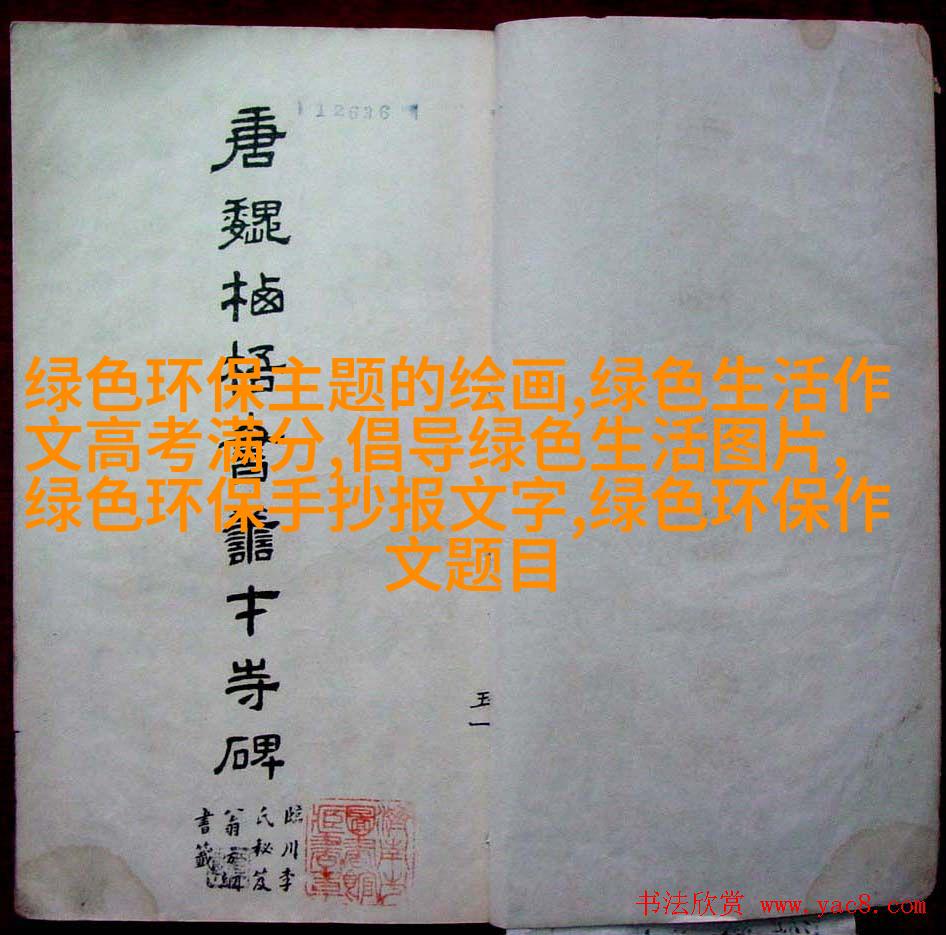 唐魏栖梧書善才寺碑
12636
臨川李
氏秘笈
翁方綱
書籤
王一
绿色环保主题的绘画,绿色生活作
文高考满分,倡导绿色生活图片,
绿色环保手抄报文字,绿色环保作
文题目
书法欣赏 www.yac8.com